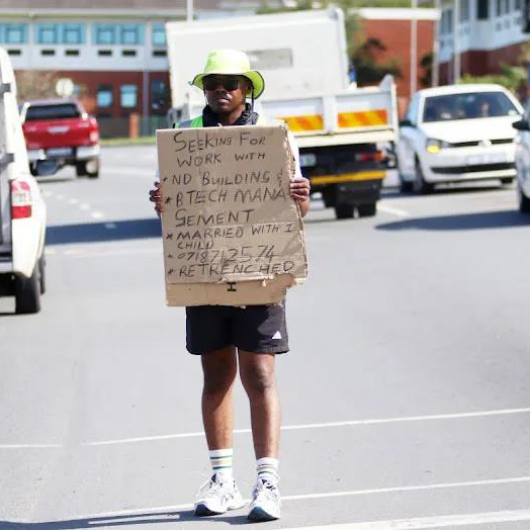 SEEKING FOR
WORK WITH
* ND BUILDING &
* BTECH MANA
GEMENT
* MARRIED WITH 1
CHILD
* 0718712574
* RETRENCHED